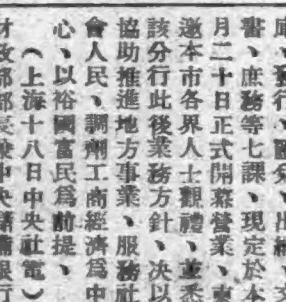 庫、發行、國分、出納、文
書、庶務等七課、現定於本
月二十日正式開幕營業、柬
邀本市各界人士觀禮、並悉
該分行此後業務方針、决以
協助推進地方事業、服務社
會人民、調劑工商經濟爲中
心、以裕國富民爲前提、
（上海十八日中央社電）
財政部部長兼中央儲備銀行